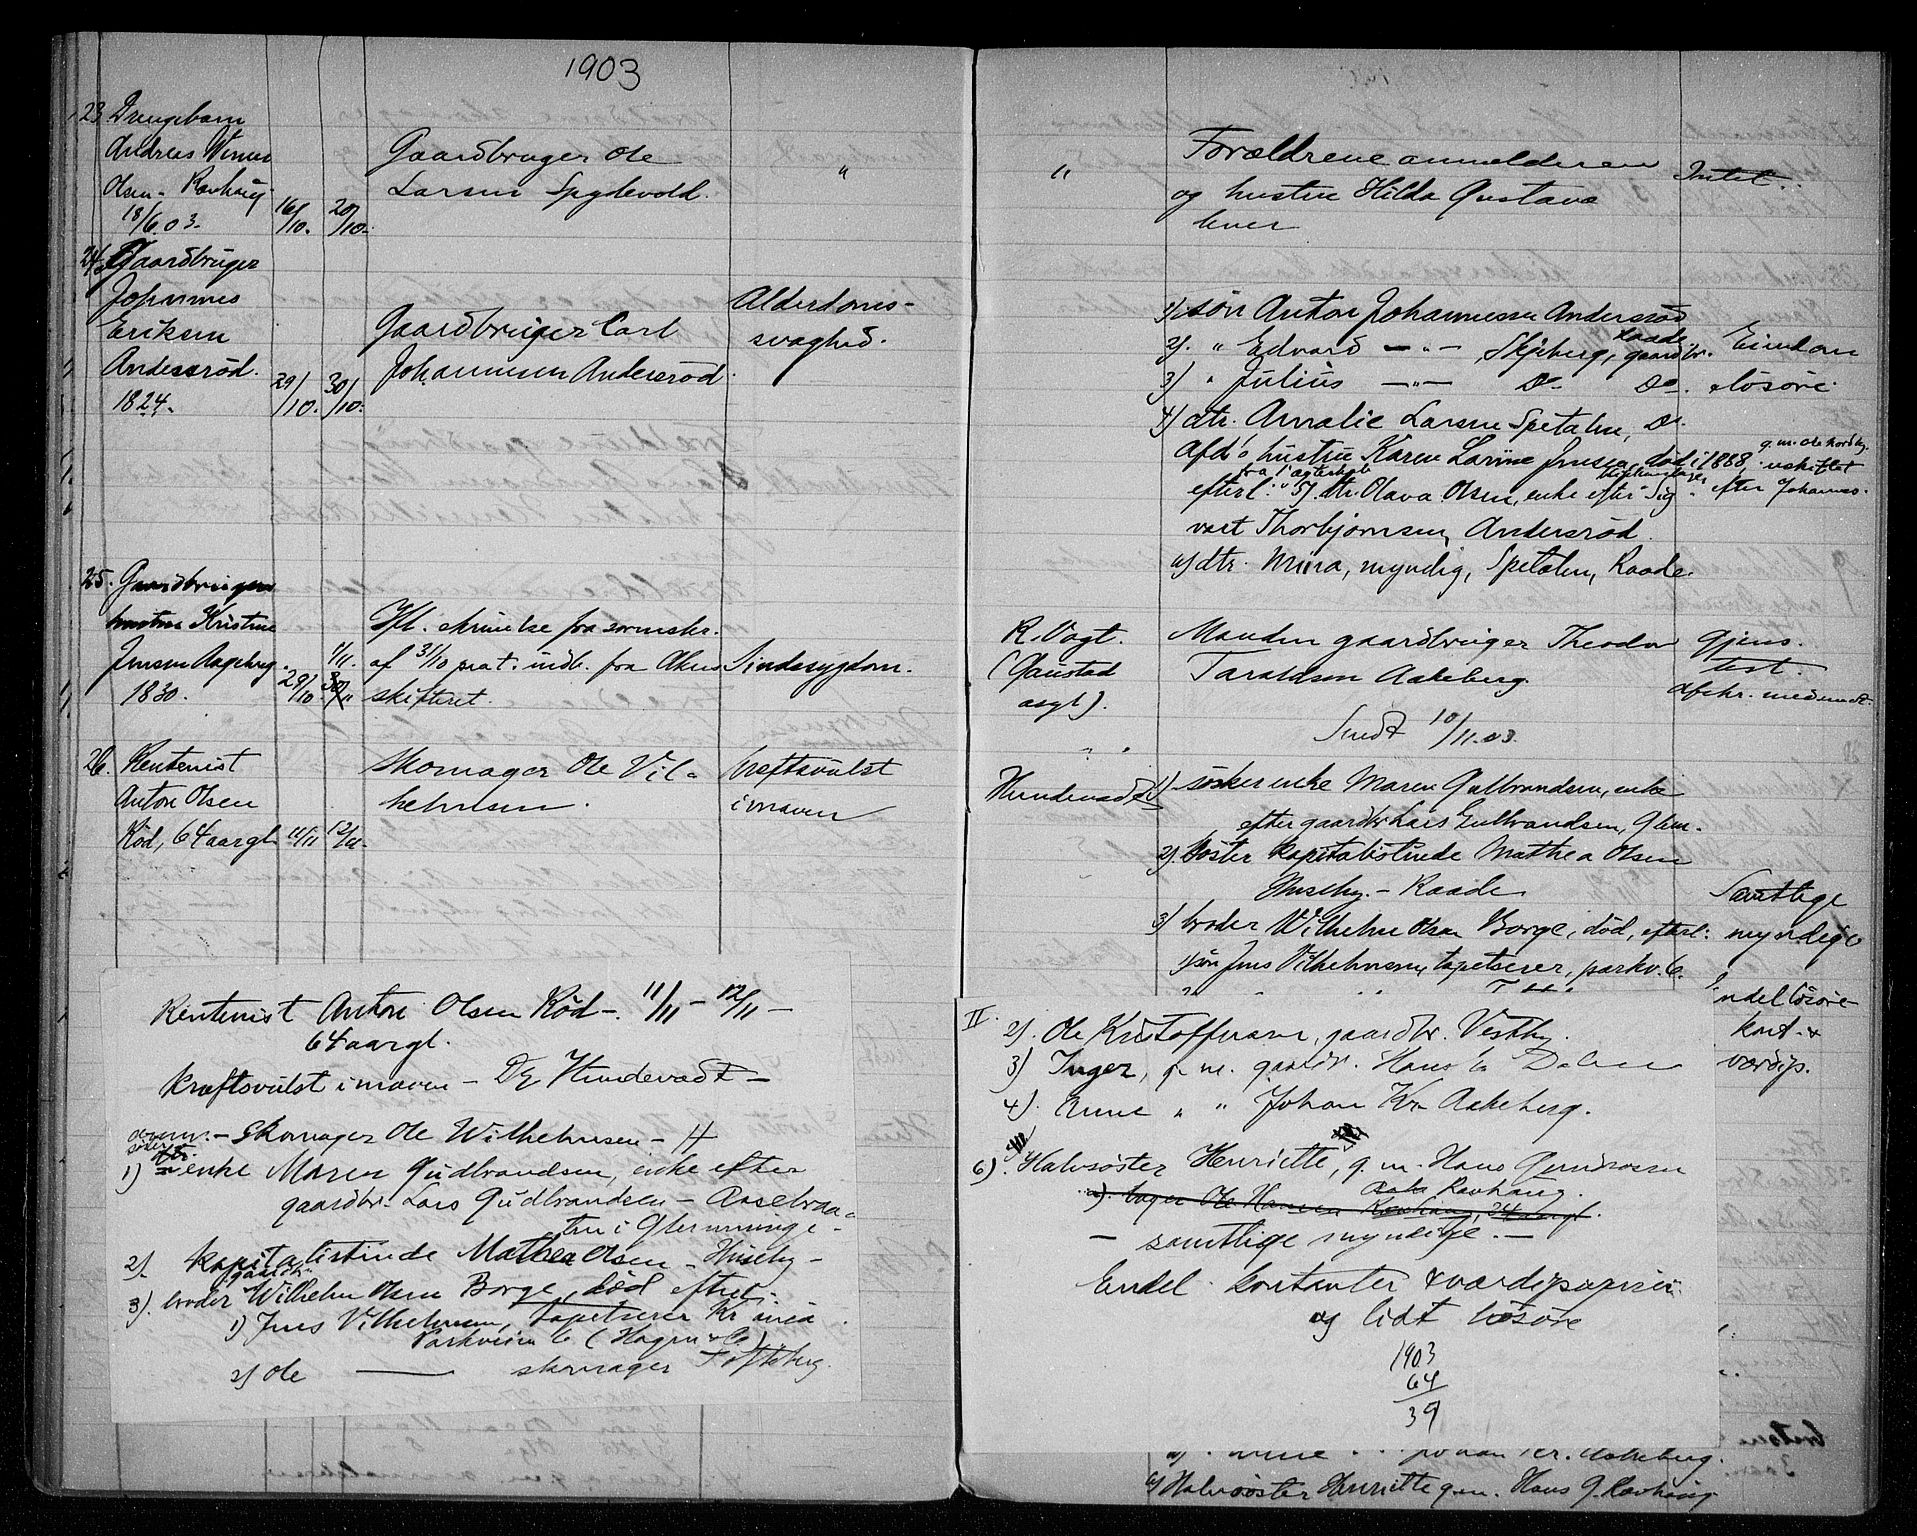 1903
23. Drengebarn
Andreas
Olsen - Ravhaug
18/6.03.
16/10.
20/10.
Gaardbruger Ole
Larsen Spydevold.
"
"
Forældrene anmelderen
og hustru Hilda Gustava
lever
Intet.
24. Gaardbruger
Johannes
Eriksen
Andersröd.
1824.
29/10.
30/10.
Gaardbruger Carl
Johannesen Andersröd.
Alderdoms-
svaghed.
1) sön Anton Johannesen Andersröd
2). " Edvard —"— Skjeberg, Raade, gaardbr.
3) " Julius —"— Do. Do.
4) dtr. Amalie Larsen Spetalen, Do.
Afd's hustru Karen Larine Jensen, död i 1888, uskiftet
g. m. Ole
efterl: 5) dtr. Olava Olsen, enke efter Sig-
efter Johannes.
vart Thorbjørnsen, Andersröd.
a) dtr. Mina, myndig, Spetalen, Raade.
Eiendom
& lösöre.
25. Gaardbrugers
hustru Kristine
Jensen Aageberg.
1830.
29/10
1/11.
30/"
Ifl. skrivelse fra sorenskr.
af 31/10 indb. fra Akers
skifteret.
Sindssygdom.
R. Vogt.
(Gaustad
asyl).
Manden gaardbruger Theodor
Taraldsen Aakeberg.
Sendt 10/11.03.
Gjens.
test.
afskr. medsendt.
26. Rentenist
Anton Olsen
Röd, 64 aargl.
11/11
12/11.
Skomager Ole Vil-
helmsen.
kræftsvulst
i maven
" "
Hundevadt
1) söster enke Maren Gulbrandsen, enke
efter gaardbr. Lars Gulbrandsen, Glem.
2) söster kapitalistinde Mathea Olsen
Huseby. - Raade
3) broder Wilhelm Olsen Borge, död, efterl:
1) sön Jens Vilhelmsen, tapetserer, parkv. 6.
Samtlige
myndige
endel lösöre
knt. &
værdip.
Rentenist Anton Olsen Röd -. 11/11 - 12/11 -
64 aargl.
kræftsvulst i maven - Dr Hundevadt -
anm. - Skomager Ole Wilhelmsen - H
söster
1) enke Maren Gudbrandsen, enke efter
gaardbr. Lars Gudbrandsen - Aaselbraa-
ten i Glemminge -
2). kapitalistinde Mathea Olsen - Huseby -
gaardbr.
3). broder Wilhelm Olsen Borge, död efterl:
1) Jens Vilhelmsen, tapetserer Kr.ania
Parkveien 6 (Hagen & Co)
2) Ole —— skomager Tofteberg.
II.
2). Ole Kristoffersen, gaardbr. Vestby.
3) Inger, g. m. gaardbr. Hans Dalen
4). Anne " " Johan Kr. Aakeberg.
6). Halvsöster Henriette, g. m. Hans Gundersen
Ravhaug.
a). bager Ole Hansen Ravhaug, 24 aargl.
- samtlige myndige. -
Endel kontanter & værdipapirer
og lidt lösöre
1903
64
39
Anne " " Johan Kr. Aakeberg.
6) Halvsöster Henriette g. m. Hans G. Ravhaug